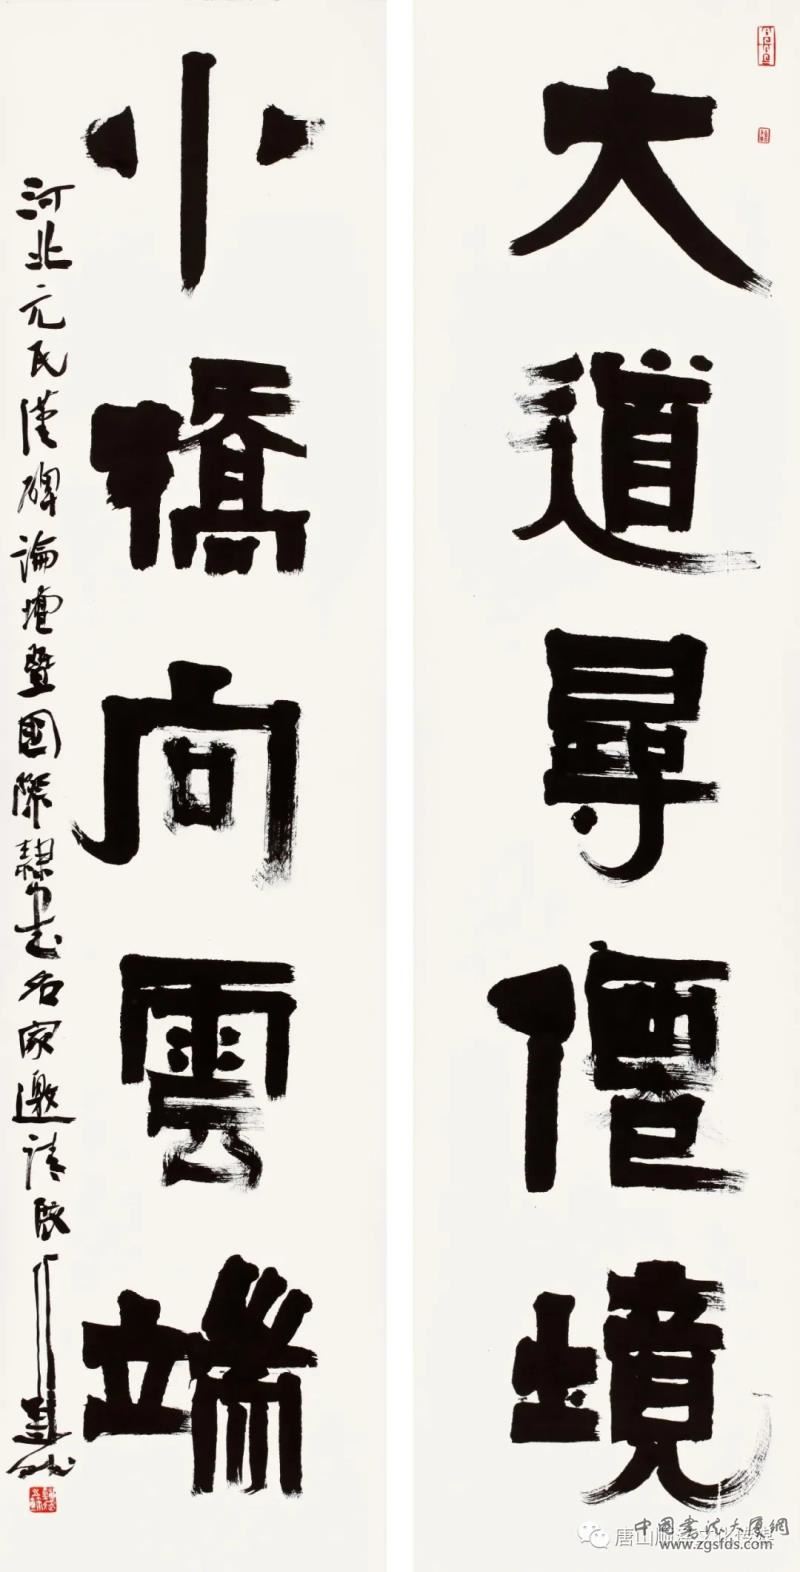 大道尋僊境
小橋向雲端
河北元氏漢碑論壇暨國際隸書名家邀請展
中国書法大厦網
www.zgsfds.com
唐山